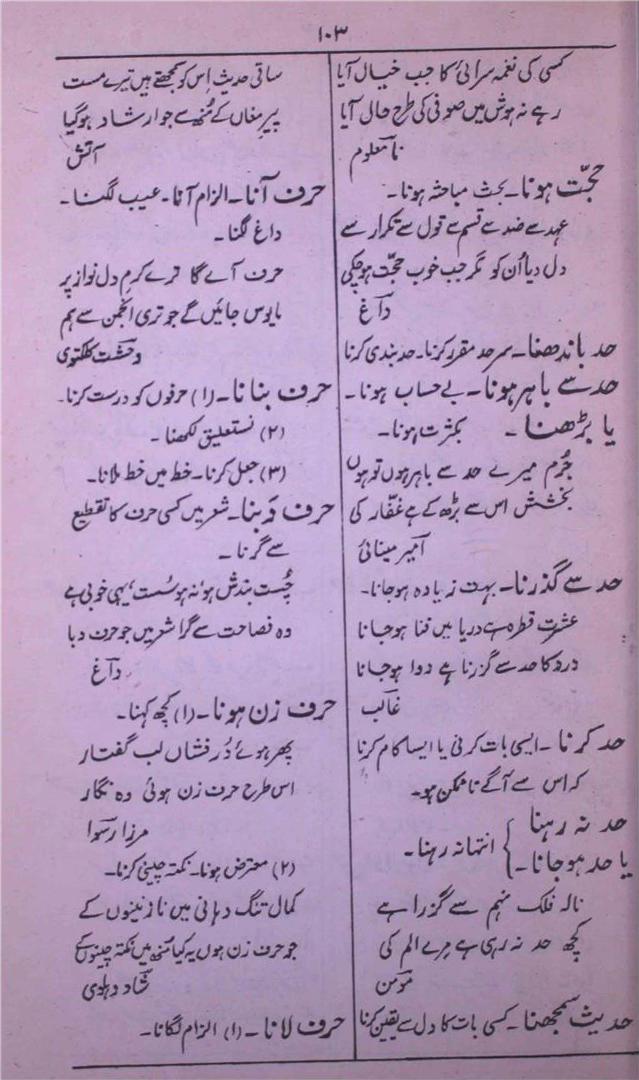 ۱۰۳
کسی کی نغمہ سرائی کا جب خیال آیا
رہے نہ ہوش میں صوفی کی طرح حال آیا
نامعلوم
حجّت ہونا۔ بحث مباحثہ ہونا۔
عہد سے ضد سے قسم سے قول سے تکرار سے
دل دیا اُن کو مگر جب خوب حجّت ہوچکی
داغ
حد باندھنا۔ سرحد مقرر کرنا۔ حد بندی کرنا
حد سے باہر ہونا۔ بے حساب ہونا۔
یا بڑھنا۔ بکثرت ہونا۔
جُرم میرے حد سے باہر ہوں تو ہوں
بخشش اس سے بڑھ کے ہے غفّار کی
امیر مینائی
حد سے گذرنا۔ بہت زیادہ ہوجانا۔
عشرتِ قطرہ ہے دریا میں فنا ہوجانا
درد کا حد سے گزرنا ہے دوا ہوجانا
غالب
حد کرنا۔ ایسی بات کرنی یا ایسا کام کرنا
کہ اس سے آگے ناممکن ہو۔
حد نہ رہنا
یا حد ہوجانا۔ } انتہا نہ رہنا۔
نالہ فلک نہم سے گزرا ہے
کچھ حد نہ رہی ہے مرے الم کی
مومن
حدیث سمجھنا۔ کسی بات کا دل سے یقین کرنا
ساقی حدیث اِس کو سمجھتے ہیں تیرے مست
پیر مغاں کے مُنھ سے جو ارشاد ہوگیا
آتش
حرف آنا۔ الزام آنا۔ عیب لگنا۔
داغ لگنا۔
حرف آے گا ترے کرم دل نواز پر
مایوس جائیں گے جو تری انجمن سے ہم
وحشت کلکتوی
حرف بنانا۔ (۱) حرفوں کو درست کرنا۔
(۲) نستعلیق لکھنا۔
(۳) جعل کرنا۔ خط میں خط ملانا۔
حرف دَبنا۔ شعر میں کسی حرف کا تقطیع
سے گرنا۔
چُست بندش ہو، نہ ہو سُست، یہی خوبی ہے
وہ فصاحت سے گرا شعر میں جو حرف دبا
داغ
حرف زن ہونا۔ (۱) کچھ کہنا۔
پھر ہوئے دُرفشاں لب گفتار
اس طرح حرف زن ہوئی وہ نگار
مرزا رسوا
(۲) معترض ہونا۔ نکتہ چینی کرنا۔
کمال تنگ دہانی میں نازنینوں کے
جو حرف زن ہوں یہ کیا منھ ہیں نکتہ چینوں کے
شاد دہلوی
حرف لانا۔ (۱) الزام لگانا۔